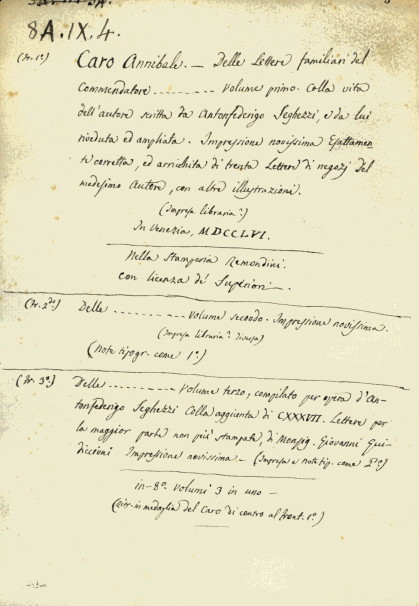 8A.IX.4.
(Nr. 1º) Caro Annibale. — Delle Lettere familiari del
Commendatore ........... Volume primo. Colla vita
dell'autore scritta da Antonfederigo Seghezzi, e da lui
riveduta ed ampliata. Impressione novissima Esattamen-
te corretta, ed arrichita di trenta Lettere di negozj Del
medesimo Autore, con altre illustrazioni.
(Impresa libraria)
In Venezia, MDCCLVI.
Nella Stamperia Remondini.
con licenza de' Superiori —.
(Nr. 2do) Delle ........... Volume secondo. Impressione novissima.
(Impresa libraria diversa)
(Note tipogr. come 1º)
(Nr. 3º) Delle .......... Volume terzo, compilato per opera d'An-
tonfederigo Seghezzi Colla aggiunta di CXXXVII. Lettere per
la maggior parte non più stampate, di Monsig. Giovanni Gui-
diccioni Impressione novissima — (Impresa e note tip. come 2º)
in-8º. Volumi 3 in uno —
in medaglia del Caro di contro al front. 1º)